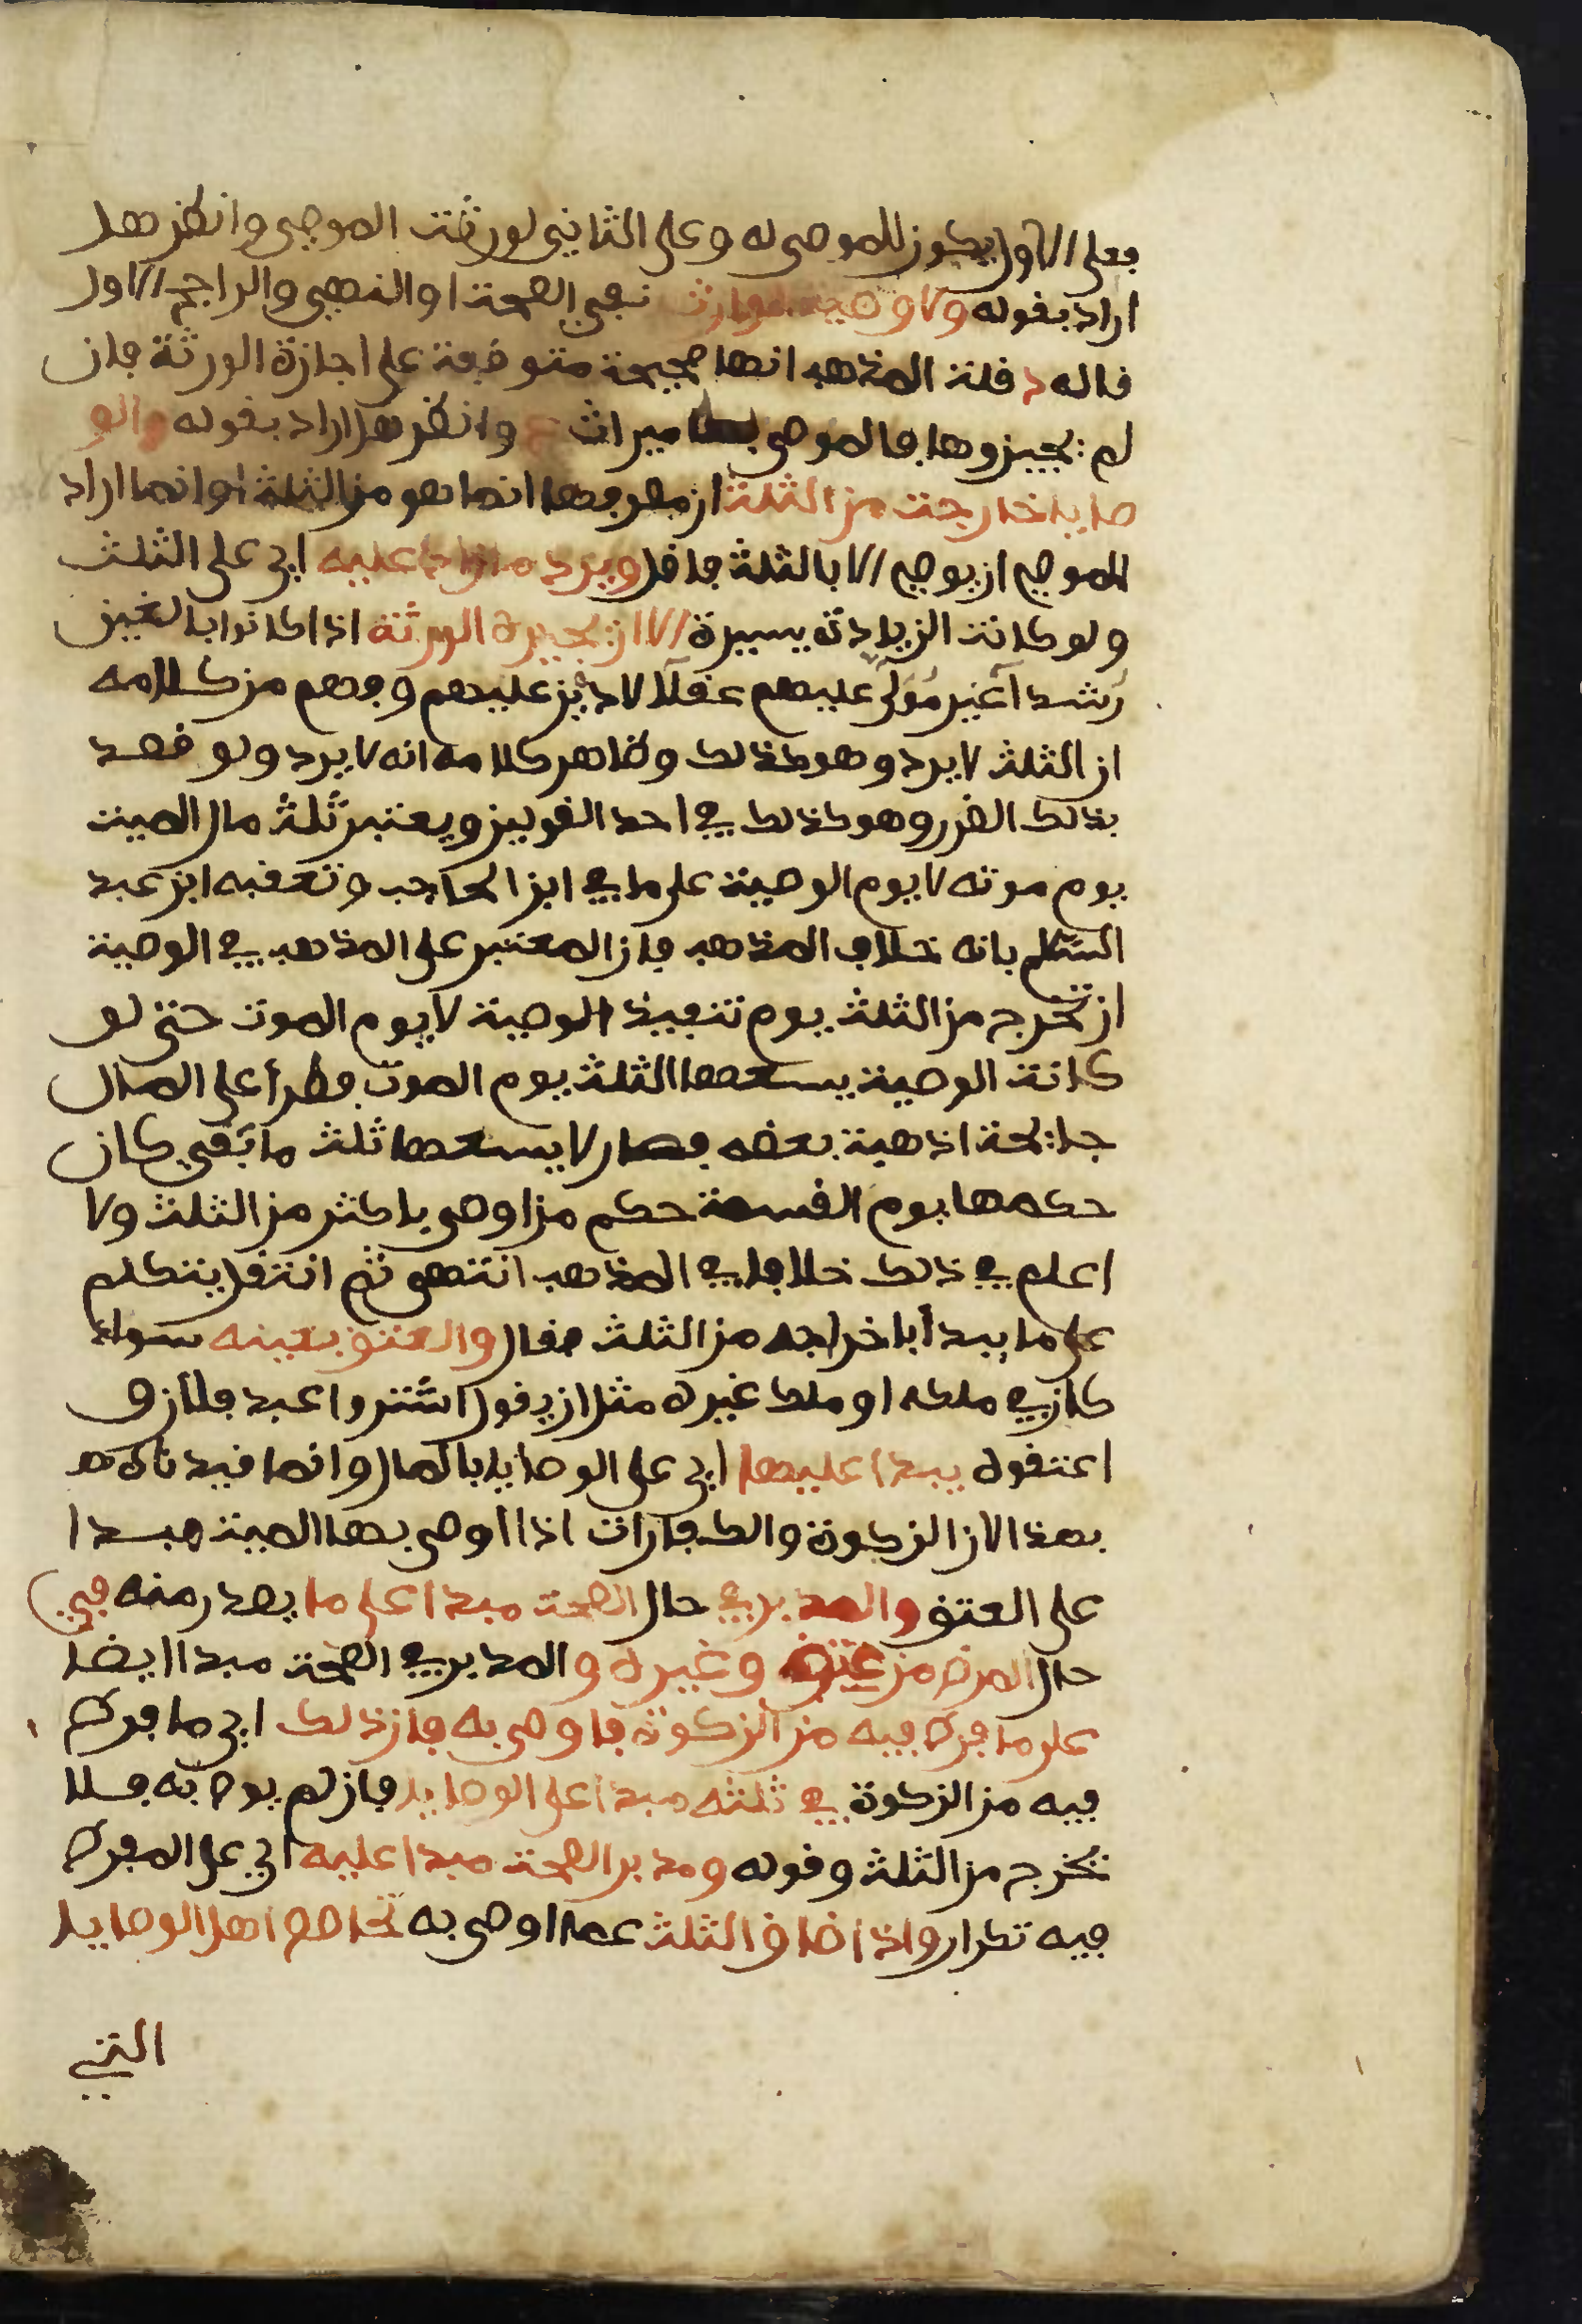 فعلى الاول يكون للموصى له وعلى الثاني لورثت الموصي وانظر هل
اراد بقوله ولا وصية لوارث نفي الصحة او النهي والراجح الاول
قاله د قلت المذهب انها صحيحة متوقفة على اجازة الورثة فان
لم يجيزوها فالموصى بها ميراث وانظر هل اراد بقوله والو
صايا خارجة من الثلث ان مخرجها انما هو من الثلث او انما اراد
للموصي ان يوصي الا بالثلث فاقل ويرد ما زاد عليه اي على الثلث
ولو كانت الزيادة يسيرة الا ان يجيزه الورثة اذا كانوا بالغين
رشدا غير مولى عليهم عقلا لا دين عليهم وفهم من كلامه
ان الثلث لا يرد وهو كذلك وظاهر كلامه انه لا يرد ولو قصد
بذلك الضرر وهو كذلك في احد القولين ويعتبر ثلث مال الميت
يوم موته لا يوم الوصية على ما في ابن الحاجب وتعقبه ابن عبد
السلم بانه خلاف المذهب فان المعتبر على المذهب في الوصية
ان تخرج من الثلث يوم تنفيذ الوصية لا يوم الموت حتى لو
كانت الوصية يسعها الثلث يوم الموت فطرأ على المال
جائحة اذهبت بعضه فصار لا يسعها ثلث ما بقي كان
حكمها يوم القسمة حكم من اوصى باكثر من الثلث ولا
اعلم في ذلك خلافا في المذهب انتهى ثم انتقل يتكلم
على ما يبدأ باخراجه من الثلث فقال والعتق بعينه سواء
كان في ملكه او ملك غيره مثل ان يقول اشتروا عبد فلان و
اعتقوه يبدا عليها اي على الوصايا بالمال وانما قيدناه
بهذا لان الزكوة والكفارات اذا اوصى بها الميت مبدا
على العتق والمدبر في حال الصحة مبدا على ما يصدر منه في
حال المرض من عتق وغيره والمدبر في الصحة مبدا ايضا
على ما فرط فيه من الزكوة فاوصى به فان ذلك اي ما فرط
فيه من الزكوة في ثلثه مبدا على الوصايا فان لم يوص به فلا
تخرج من الثلث وقوله ومدبر الصحة مبدا عليه اي على المفرط
فيه تكرار واذا ضاق الثلث عما اوصى به تحاصص اهل الوصايا
التي